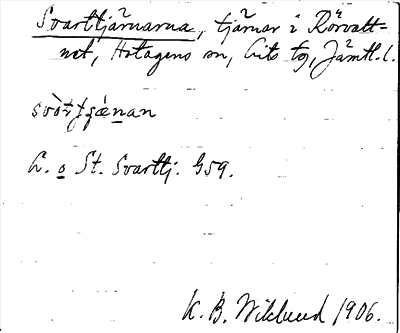 Svarttjärnarna, tjärnar i Rörvatt-
net, Hotagens sn, Lits tg, Jämtl. l.
svòrtjǽnan
L. o St. Svarttj. G59.
K. B. Wiklund 1906.